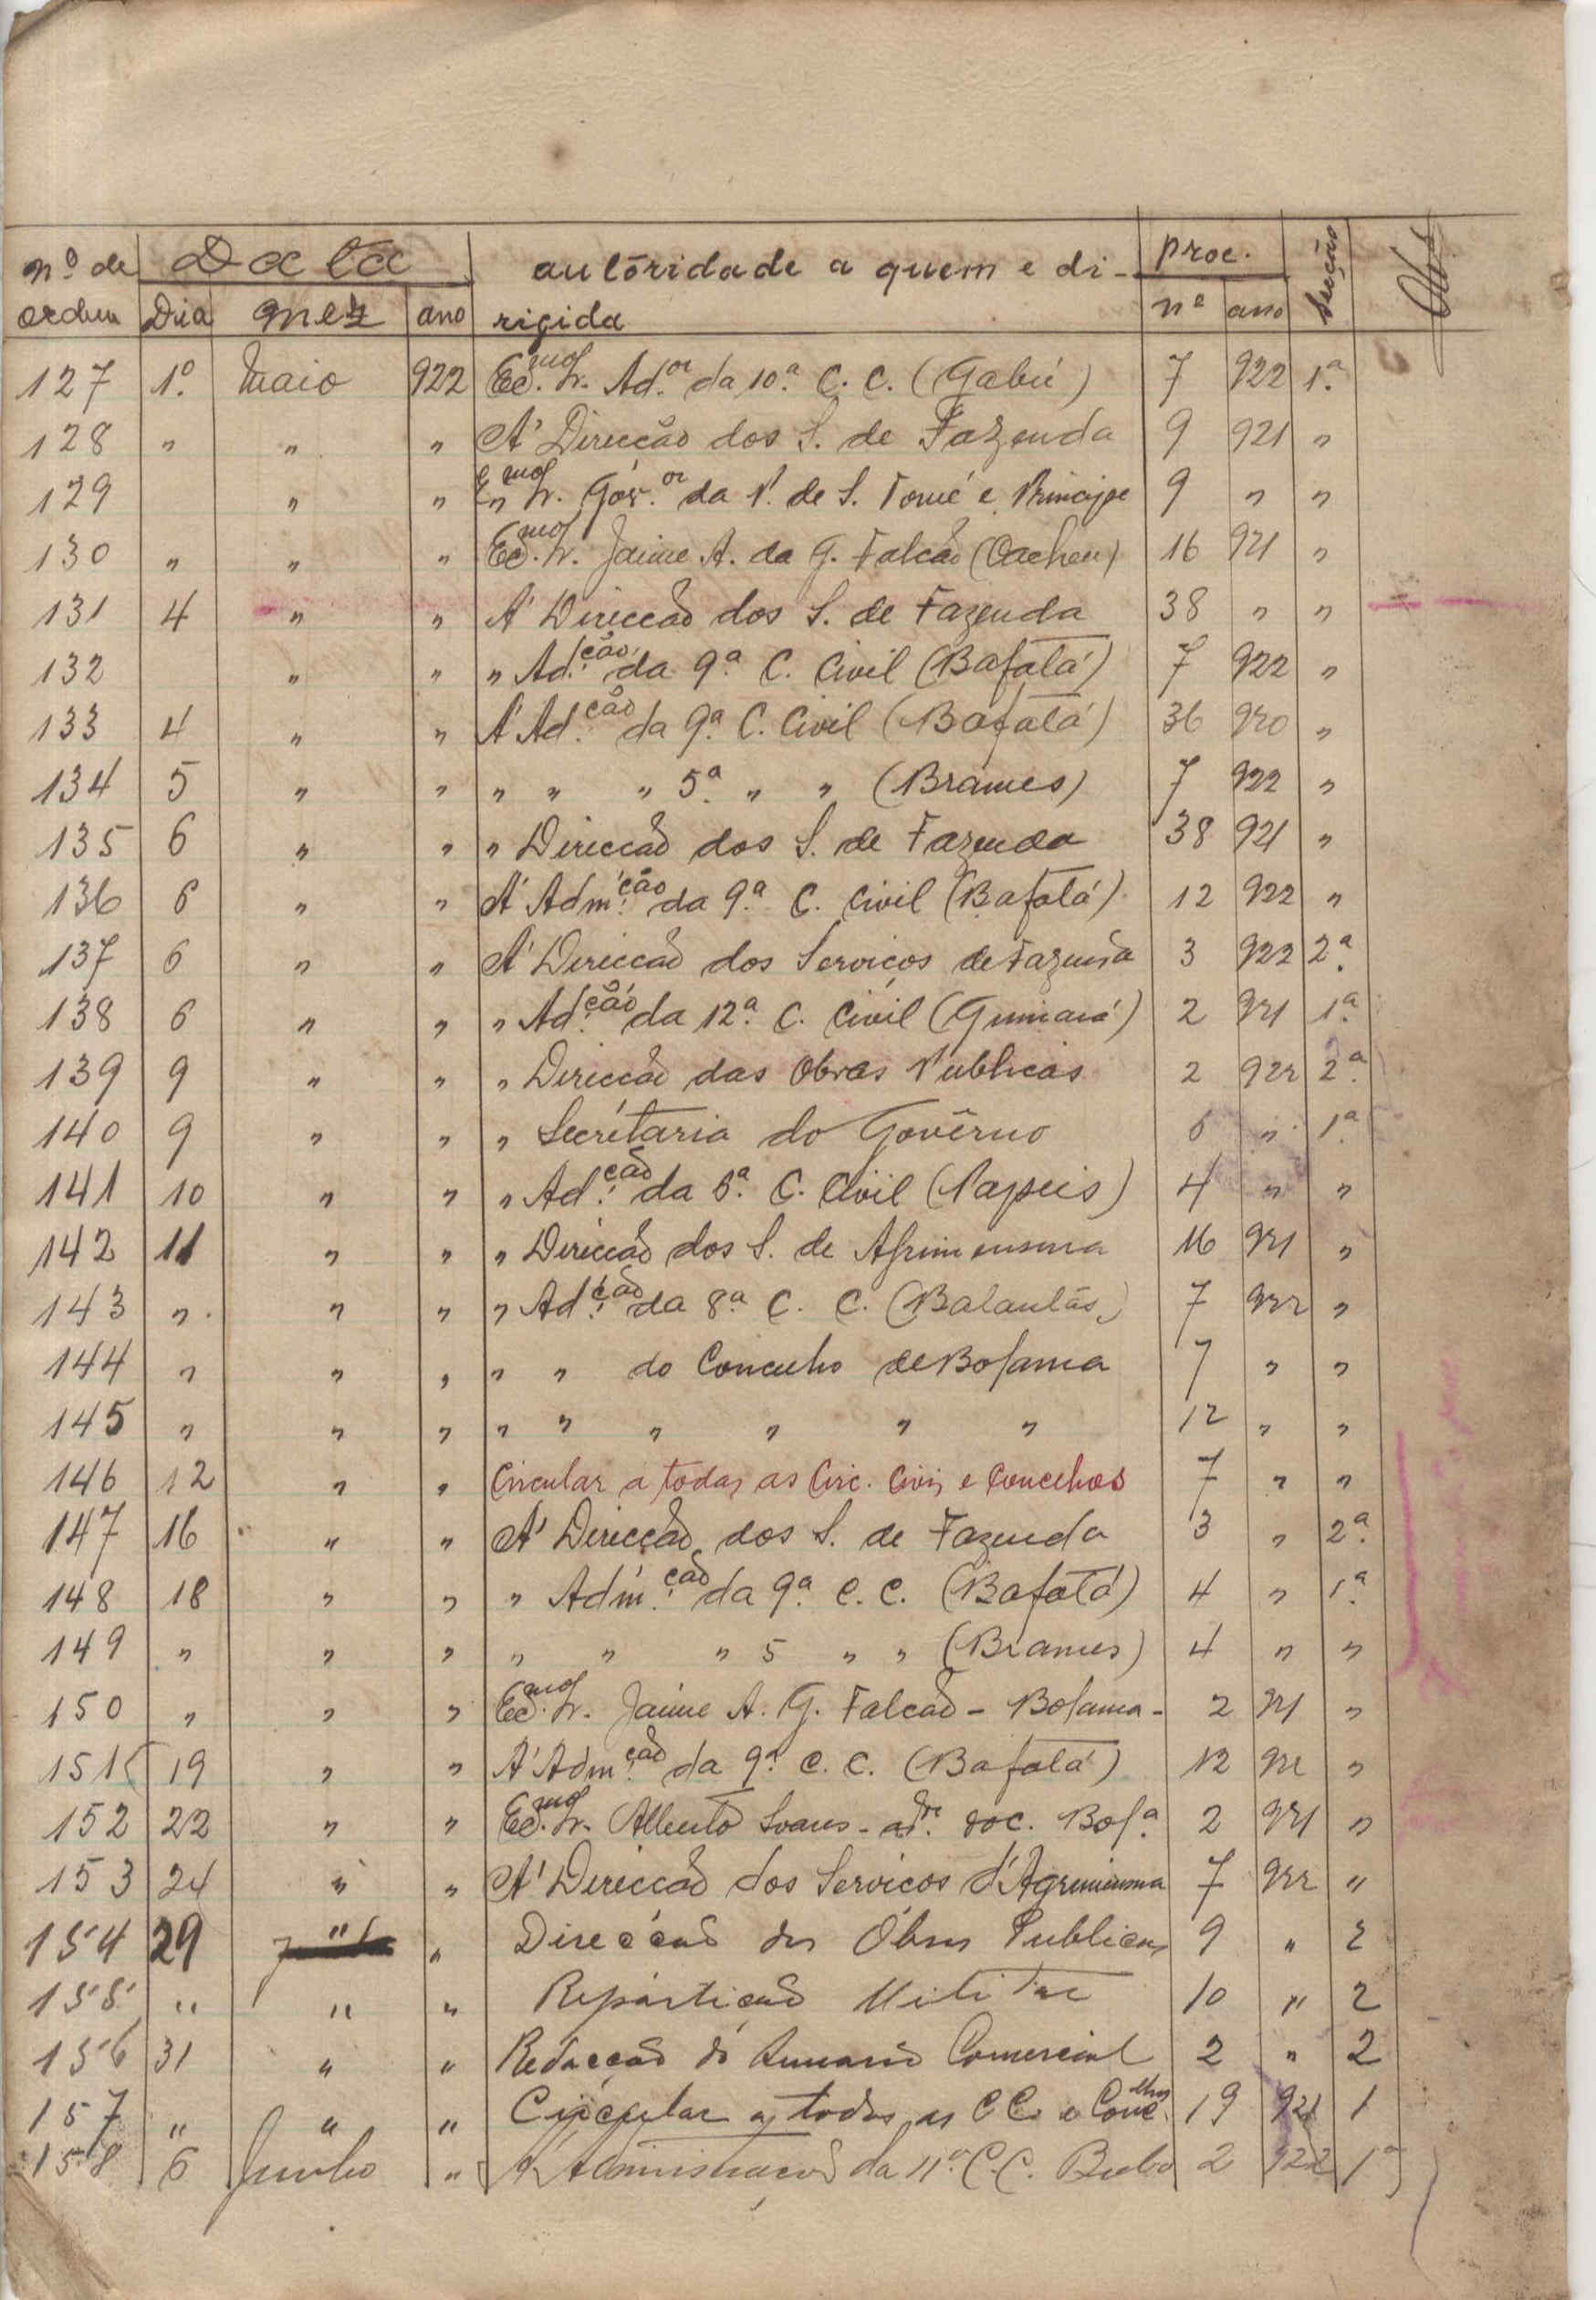 nº de Data autoridade a quem e di- Proc. Secção Obs
ordem Dia mez ano rigida nº ano
127 1.º Maio 922 Ex.mo Sr. Ad.or da 10.ª C. C. (Gabú) 7 922 1.ª
128 " " " Á Direcção dos S. de Fazenda 9 921 "
129 " " Sr. Gov.or da P. de S. Tomé e Principe 9 " "
130 " " " Ex.mo Sr. Jaime A. da G. Falcão (Cacheu) 16 921 "
131 4 " " Á Direcção dos S. de Fazenda 38 " "
132 " " " Ad.ção da 9.ª C. Civil (Bafatá) 7 922 "
133 4 " " Á Ad.ção da 9.ª C. Civil (Bafatá) 36 920 "
134 5 " " " " " 5.ª " " (Brames) 7 922 "
135 6 " " " Direcção dos S. de Fazenda 38 921 "
136 6 " " Á Adm.ção da 9.ª C. Civil (Bafatá) 12 922 "
137 6 " " Á Direcção dos Serviços de Fazenda 3 922 2.ª
138 6 " " " Ad.ção da 12.ª C. Civil 2 921 1.ª
139 9 " " " Direcção das Obras Publicas 2 922 2.ª
140 9 " " " Secretaria do Govêrno 6 " 1.ª
141 10 " " " Ad.ção da 6.ª C. Civil (Papeis) 4 " "
142 11 " " " Direcção dos S. de Agrimensura 16 921 "
143 " " " " Ad.ção da 8.ª C. C. (Balantas) 7 922 "
144 " " " " " do Concelho de Bolama 7 " "
145 " " " " " " " " " 12 " "
146 12 " " Circular a todas as Circ. Civis e Concelhos 7 " "
147 16 " " Á Direcção dos S. de Fazenda 3 " 2.ª
148 18 " " " Adm.ção da 9.ª C. C. (Bafatá) 4 " 1.ª
149 " " " " " " 5 " " (Brames) 4 " "
150 " " " Ex.mo Sr. Jaime A. G. Falcão - Bolama - 2 921 "
151 19 " " Á Adm.ção da 9.ª C. C. (Bafatá) 12 922 "
152 22 " " Ex.mo Sr. Alberto Soares - Bol.ª 2 921 "
153 24 " " Á Direcção dos Serviços d'Agrimensura 7 922 "
154 29 " " Direcção das Obras Publicas 9 " 2
155 " " " Repartição Militar 10 " 2
156 31 " " Redacção do Anuario Comercial 2 " 2
157 " " " Circular a todas as CC. e Conc.lhos 19 921 1
158 6 Junho " Á Administração da 11.ª C. C. Buba 2 922 1ª